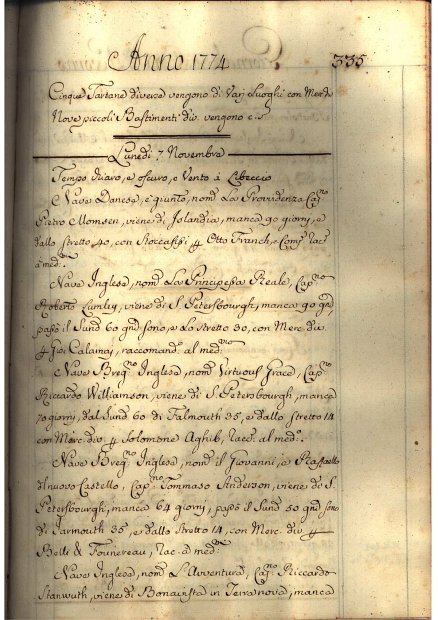 Anno 1774 335
Cinque Tartane diverse vengono di Varj Luoghi con Merd.
Nove piccoli Bastimenti div. vengono c. S.
Lunedi 7 Novembre
Tempo chiaro, e oscuro, e Vento à Libeccio
Nave Danese, è giunto, nom. La Providenza Cap.
Pietro Momsen, viene di Islandia, manca 90 giorni, e
dallo stretto 40, con Stoccafissi p Otto Franch, e Comp. rac.
a med.
Nave Inglese, nom. La Principessa Reale, Cap.no
Roberto Lumley, viene di S. Petersbourgh, manca 90 gni
passò il Sund 60 gni sono, e Lo stretto 30, con Merc. div.
p Gio: Calamai, raccomand. al med.mo
Nave Brig.no Inglese, nom. Virtuous Grace, Cap.
Riccardo Williamson, viene di S. Petersbourgh, manca
70 giorni, dal Sund 60 di Falmouth 35, e dallo stretto 14
con Merc. div. p Solomone Aghib, racc. al med.o
Nave Brig.no Inglese, nom. il Giovanni, e Raffaello
di nuovo Castello, Cap.no Tommaso Anderson, viene di S.
Petersbourgh, manca 64 giorni, passò il Sund 50 gni sono
di Jarmouth 35, e dallo stretto 14, con Merc. div. p
Belli & Founereau, rac. a med.mi
Nave Inglese, nom. L'Avventura, Cap.no Riccardo
Stanwuth, viene di Bonavista in Terra nova, manca